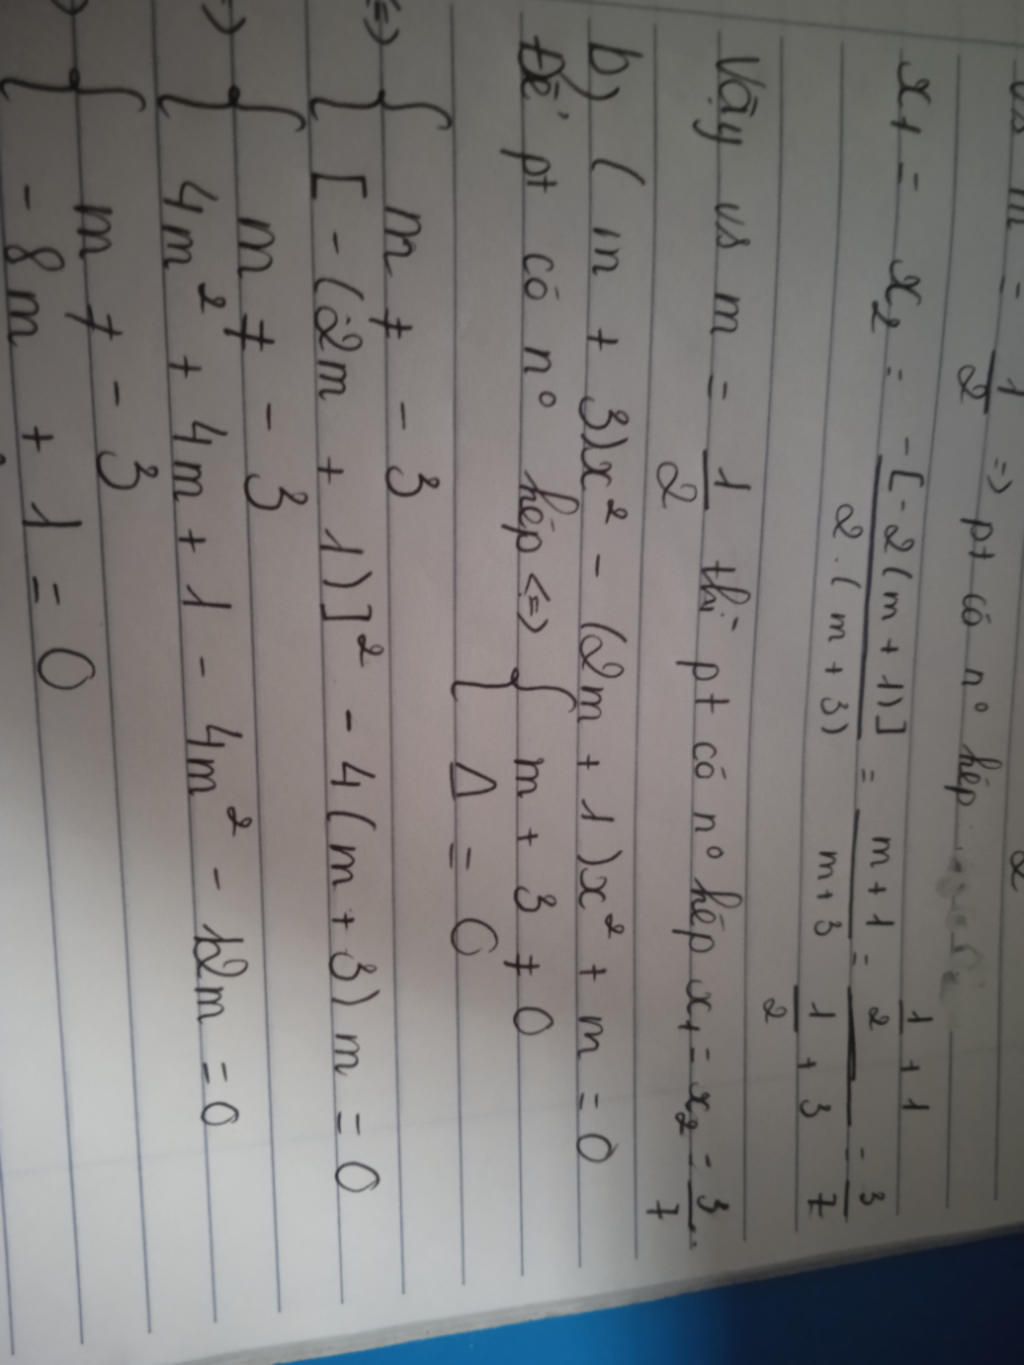 m = 1/2 => pt có n° kép
x₁ = x₂ = -[-2(m+1)] / 2.(m+3) = m+1 / m+3 = (1/2 + 1) / (1/2 + 3) = 3/7
Vậy vs m = 1/2 thì pt có n° kép x₁ = x₂ = 3/7.
b) (m + 3)x² - (2m + 1)x² + m = 0
Để pt có n° kép <=> { m + 3 ≠ 0
{ Δ = 0
<=> { m ≠ -3
{ [-(2m + 1)]² - 4(m + 3)m = 0
=> { m ≠ -3
{ 4m² + 4m + 1 - 4m² - 12m = 0
{ m ≠ -3
{ -8m + 1 = 0